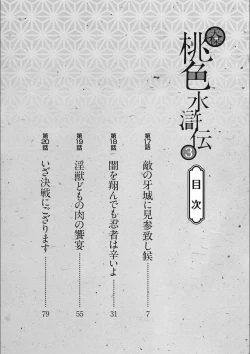 桃色水滸伝
3
目次
第17話 敵の牙城に見参致し候 7
第18話 闇を翔んでも忍者は辛いよ 31
第19話 淫獣どもの肉の饗宴 55
第20話 いざ決戦にござります 79